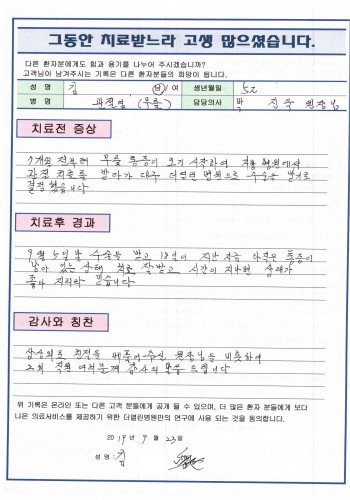 그동안 치료받느라 고생 많으셨습니다.
다른 환자분에게도 힘과 용기를 나누어 주시겠습니까?
고객님이 남겨주시는 기록은 다른 환자분들의 희망이 됩니다.
성 명 김 남/여 생년월일 52
병 명 관절염 (무릎) 담당의사 박 진욱 원장님
치료전 증상
7개월 전부터 무릎 통증이 오기 시작하여 병원에서
치료를 받다가 대구 더열린 병원으로 수술을 받기로
결정했습니다
치료후 경과
9월 5일날 수술을 받고 18일이 지난 지금 아직은 통증이
남아 있는 상태 치료 잘받고 시간이 지나면 상태가
좋아 지리라 믿습니다
감사와 칭찬
친절을 베풀어주신 원장님을 비롯하여
직원 여러분께 감사의 말씀 드립니다
위 기록은 온라인 또는 다른 고객 분들에게 공개 될 수 있으며, 더 많은 환자 분들에게 보다
나은 의료서비스를 제공하기 위한 더열린병원만의 연구에 사용 되는 것을 동의합니다.
2019년 9월 23일
성 명 : 김